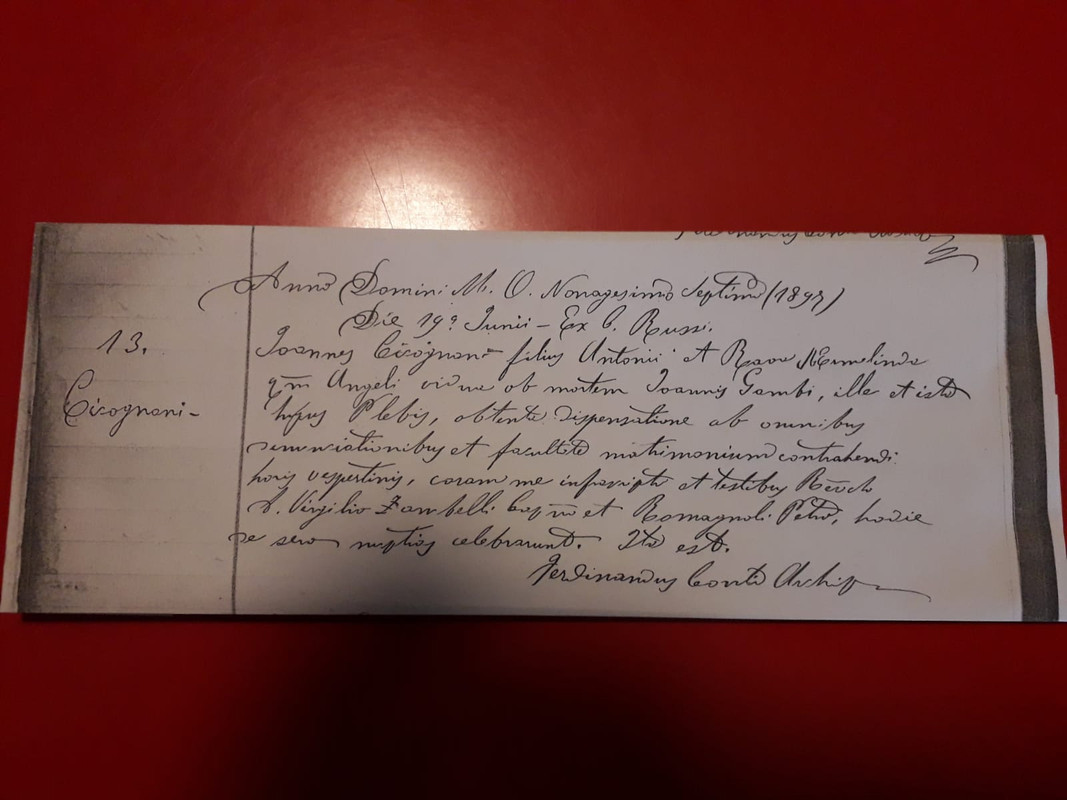 Anno Domini M. O. Nonagesimo Septimo (1897)
Die 19ª Junii - Ex C. Russi.
13.
Joannes Cicognani filius Antonii et Rava Ermelinda
Cicognani -
qm Angeli vidua ob mortem Joannis Gambi, ille et ista
hujus Plebis, obtenta dispensatione ab omnibus
denunciationibus et facultate matrimonium contrahendi
horis vespertinis, coram me infrascripto et testibus Revdo
D. Virgilio Zambelli et Romagnoli Petro, hodie
de sero nuptias celebrarunt. Ita est.
Ferdinandus Conti Archip